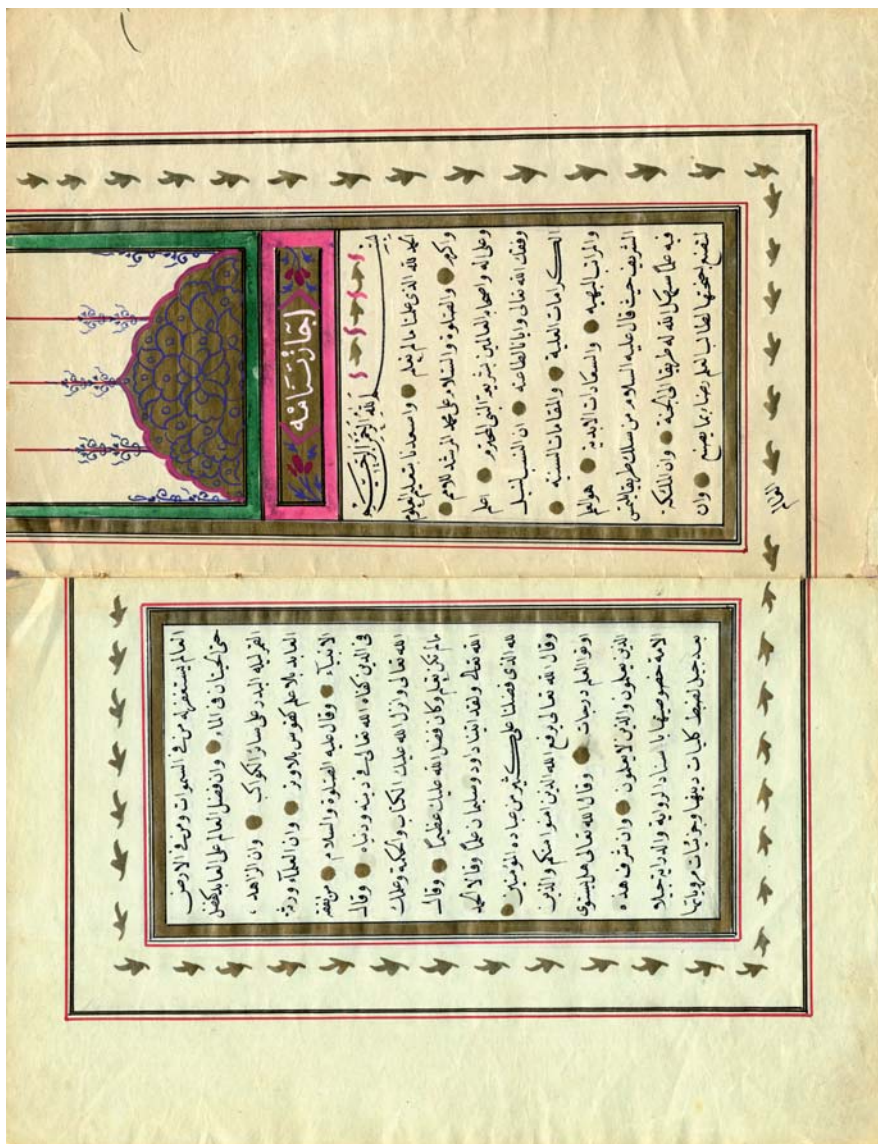 اجازتنامه
بسم الله الرحمن الرحيم
الحمد لله الذى علمنا ما لم نعلم واسعدنا بتعليم العلوم
واكرم والصلوة والسلام على محمد المرشد للامم
وعلى اله واصحابه العالمين بشريعة النبى المحترم اعلم
وفقك الله تعالى وايانا لطاعته ان السبب لنيل
الكرامات العلية والمقامات السنية
والمراتب البهيه والسعادات الابديه هو العلم
الشريف حيث قال عليه السلام من سلك طريقا يلتمس
فيه علما سهل الله له طريقا الى الجنة وان الملئكة
لتضع اجنحتها لطالب العلم رضا بما يصنع وان
العالم
العالم يستغفر له من فى السموات ومن فى الارض
حتى الحيتان فى الماء وان فضل العالم على العابد كفضل
القمر ليلة البدر على سائر الكواكب وان الزاهد
العابد بلا علم كقوس بلا وتر وان العلماء ورثة
الانبياء وقال عليه الصلوة والسلام من تفقه
فى الدين كفاه الله تعالى فى دينه ودنياه وقال
الله تعالى وانزل الله عليك الكتاب والحكمة وعلمك
مالم تكن تعلم وكان فضل الله عليك عظيما وقال
الله تعالى ولقد اتينا داود وسليمان علما وقالا الحمد
لله الذى فضلنا على كثير من عباده المؤمنين
وقال الله تعالى يرفع الله الذين امنوا منكم والذين
اوتو العلم درجات وقال الله تعالى هل يستوى
الذين يعلمون والذين لا يعلمون وان شرف هذه
الامة خصوصيتها باسناد الرواية والدراية جيلا
بعد جيل لضبط كليات دينها وجزئيات مروياتها